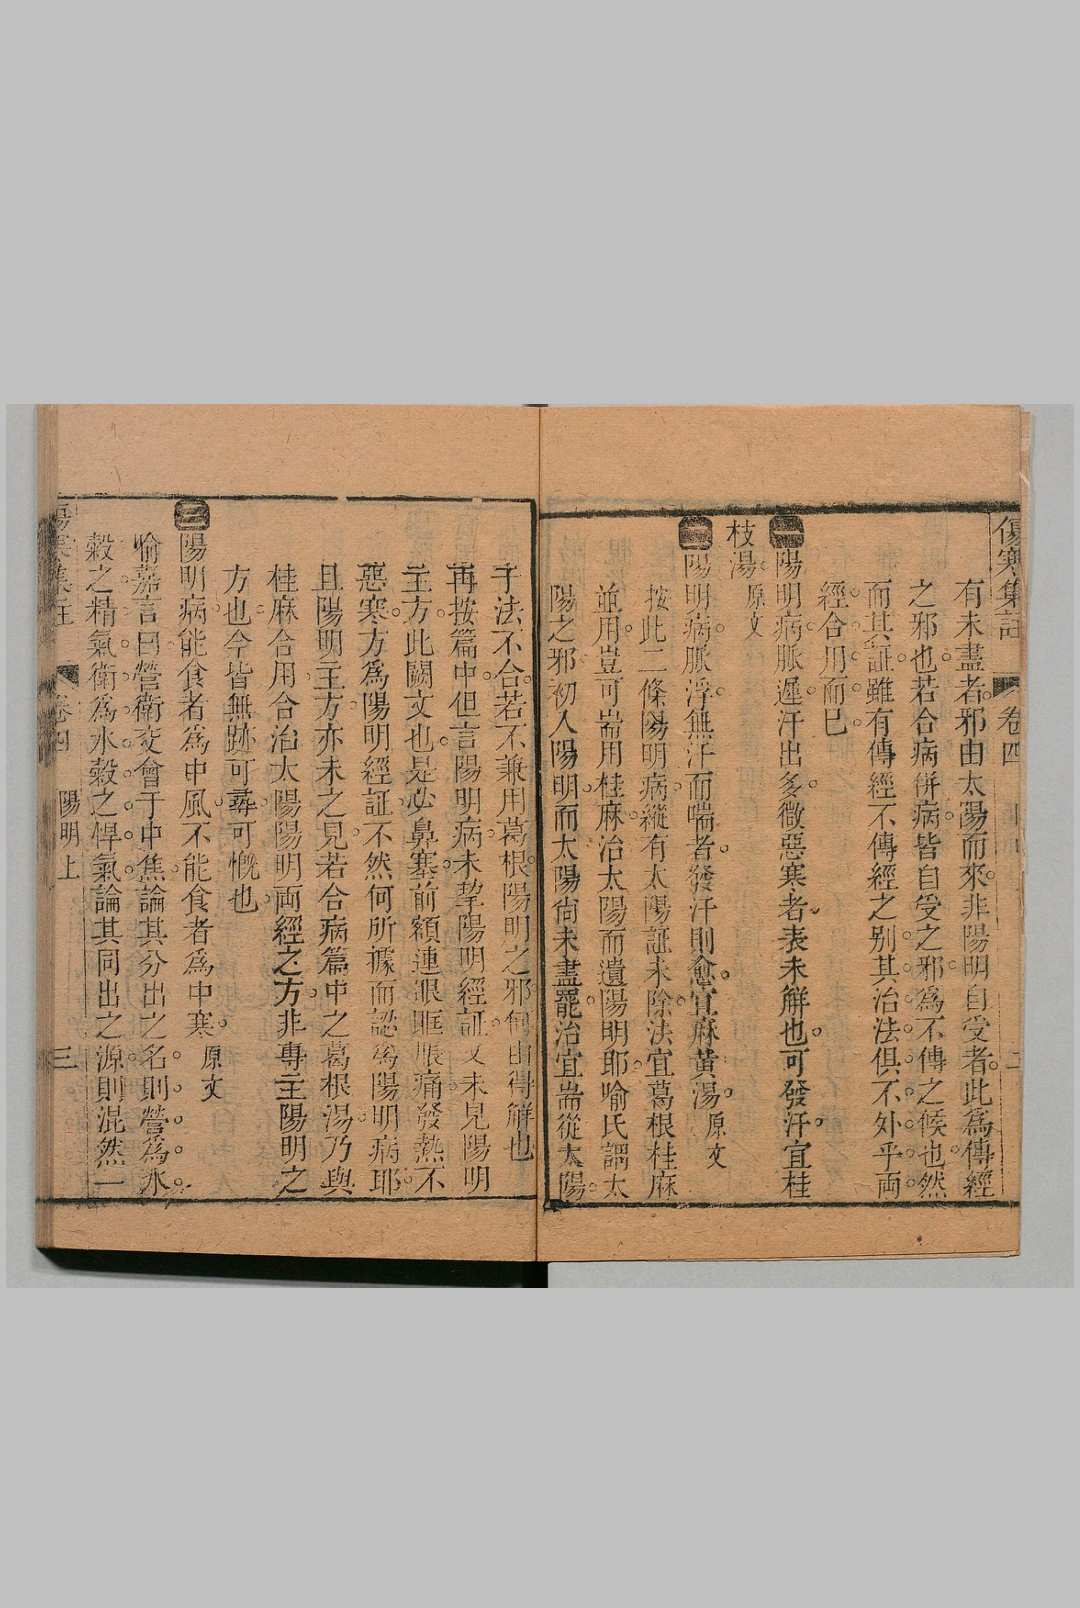 傷寒集註 卷四 二
有未盡者邪由太陽而來非陽明自受者此為傳經
之邪也若合病併病皆自受之邪為不傳之候也然
而其証雖有傳經不傳經之別其治法俱不外乎両
經合用而已
一陽明病脈遲汗出多微惡寒者表未解也可發汗宜桂
枝湯 原文
二陽明病脈浮無汗而喘者發汗則愈宜麻黃湯 原文
按此二條陽明病縱有太陽証未除法宜葛根桂麻
並用豈可耑用桂麻治太陽而遺陽明耶喻氏謂太
陽之邪初入陽明而太陽尙未盡罷治宜耑從太陽
于法不合若不兼用葛根陽明之邪何由得解也
再按篇中但言陽明病未挈陽明經証又未見陽明
主方此闕文也是必鼻塞前額連眼眶脹痛發熱不
惡寒方爲陽明經証不然何所據而認爲陽明病耶
且陽明主方亦未之見若合病篇中之葛根湯乃與
桂麻合用合治太陽陽明両經之方非專主陽明之
方也今皆無跡可尋可慨也
三陽明病能食者爲中風不能食者爲中寒 原文
喻嘉言曰營衛交會于中焦論其分出之名則營爲水
穀之精氣衛爲水穀之悍氣論其同出之源則混然一
傷寒集註 卷四 陽明上 三